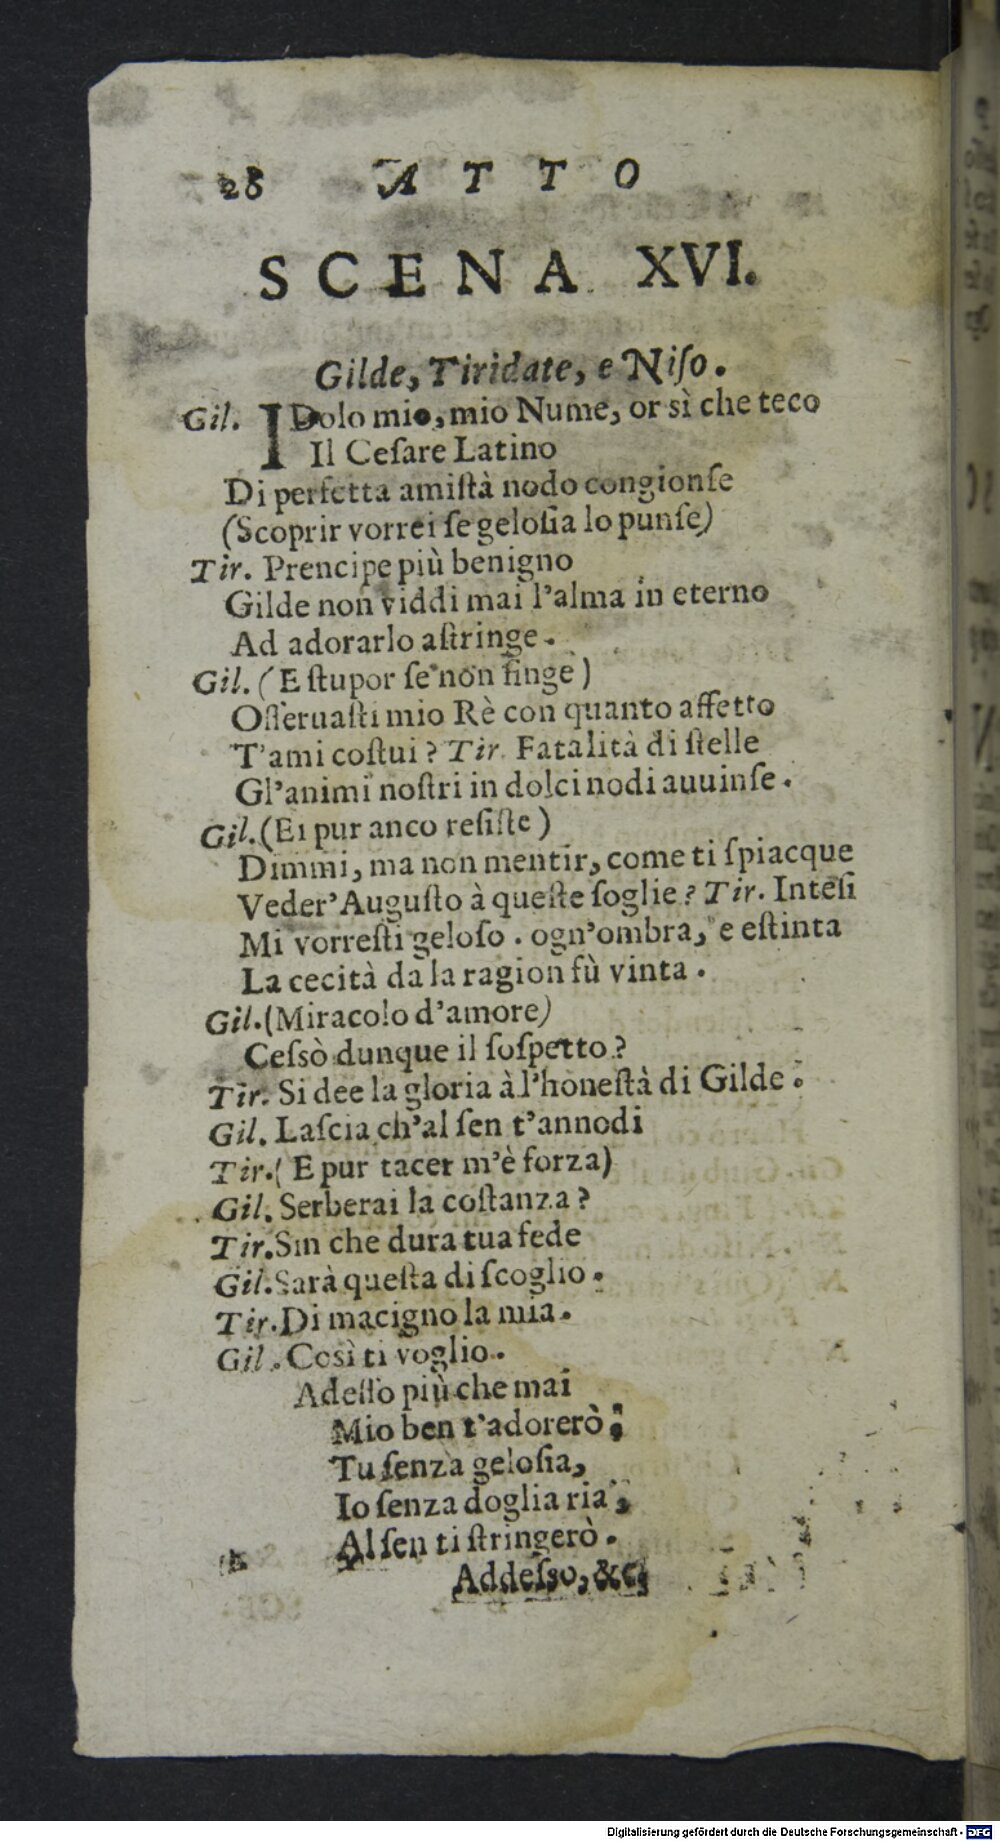 28 ATTO
SCENA XVI.
Gilde, Tiridate, e Niſo.
Gil. IDolo mio, mio Nume, or sì che teco
Il Ceſare Latino
Di perfetta amiſtà nodo congionſe
(Scoprir vorrei ſe geloſia lo punſe)
Tir. Prencipe più benigno
Gilde non viddi mai l'alma in eterno
Ad adorarlo aſtringe.
Gil. (E ſtupor ſe non finge)
Oſſeruaſti mio Rè con quanto affetto
T'ami coſtui? Tir. Fatalità di ſtelle
Gl'animi noſtri in dolci nodi auuinſe.
Gil. (Ei pur anco reſiſte)
Dimmi, ma non mentir, come ti ſpiacque
Veder'Auguſto à queſte ſoglie? Tir. Inteſi
Mi vorreſti geloſo. ogn'ombra, e eſtinta
La cecità da la ragion fù vinta.
Gil. (Miracolo d'amore)
Ceſsò dunque il ſoſpetto?
Tir. Si dee la gloria à l'honeſtà di Gilde.
Gil. Laſcia ch'al ſen t'annodi
Tir. (E pur tacer m'è forza)
Gil. Serberai la coſtanza?
Tir. Sin che dura tua fede
Gil. Sarà queſta di ſcoglio.
Tir. Di macigno la mia.
Gil. Così ti voglio.
Adeſſo più che mai
Mio ben t'adorerò;
Tu ſenza geloſia,
Io ſenza doglia ria,
Al ſen ti ſtringerò.
Addeſso, &c.
Digitalisierung gefördert durch die Deutsche Forschungsgemeinschaft - DFG